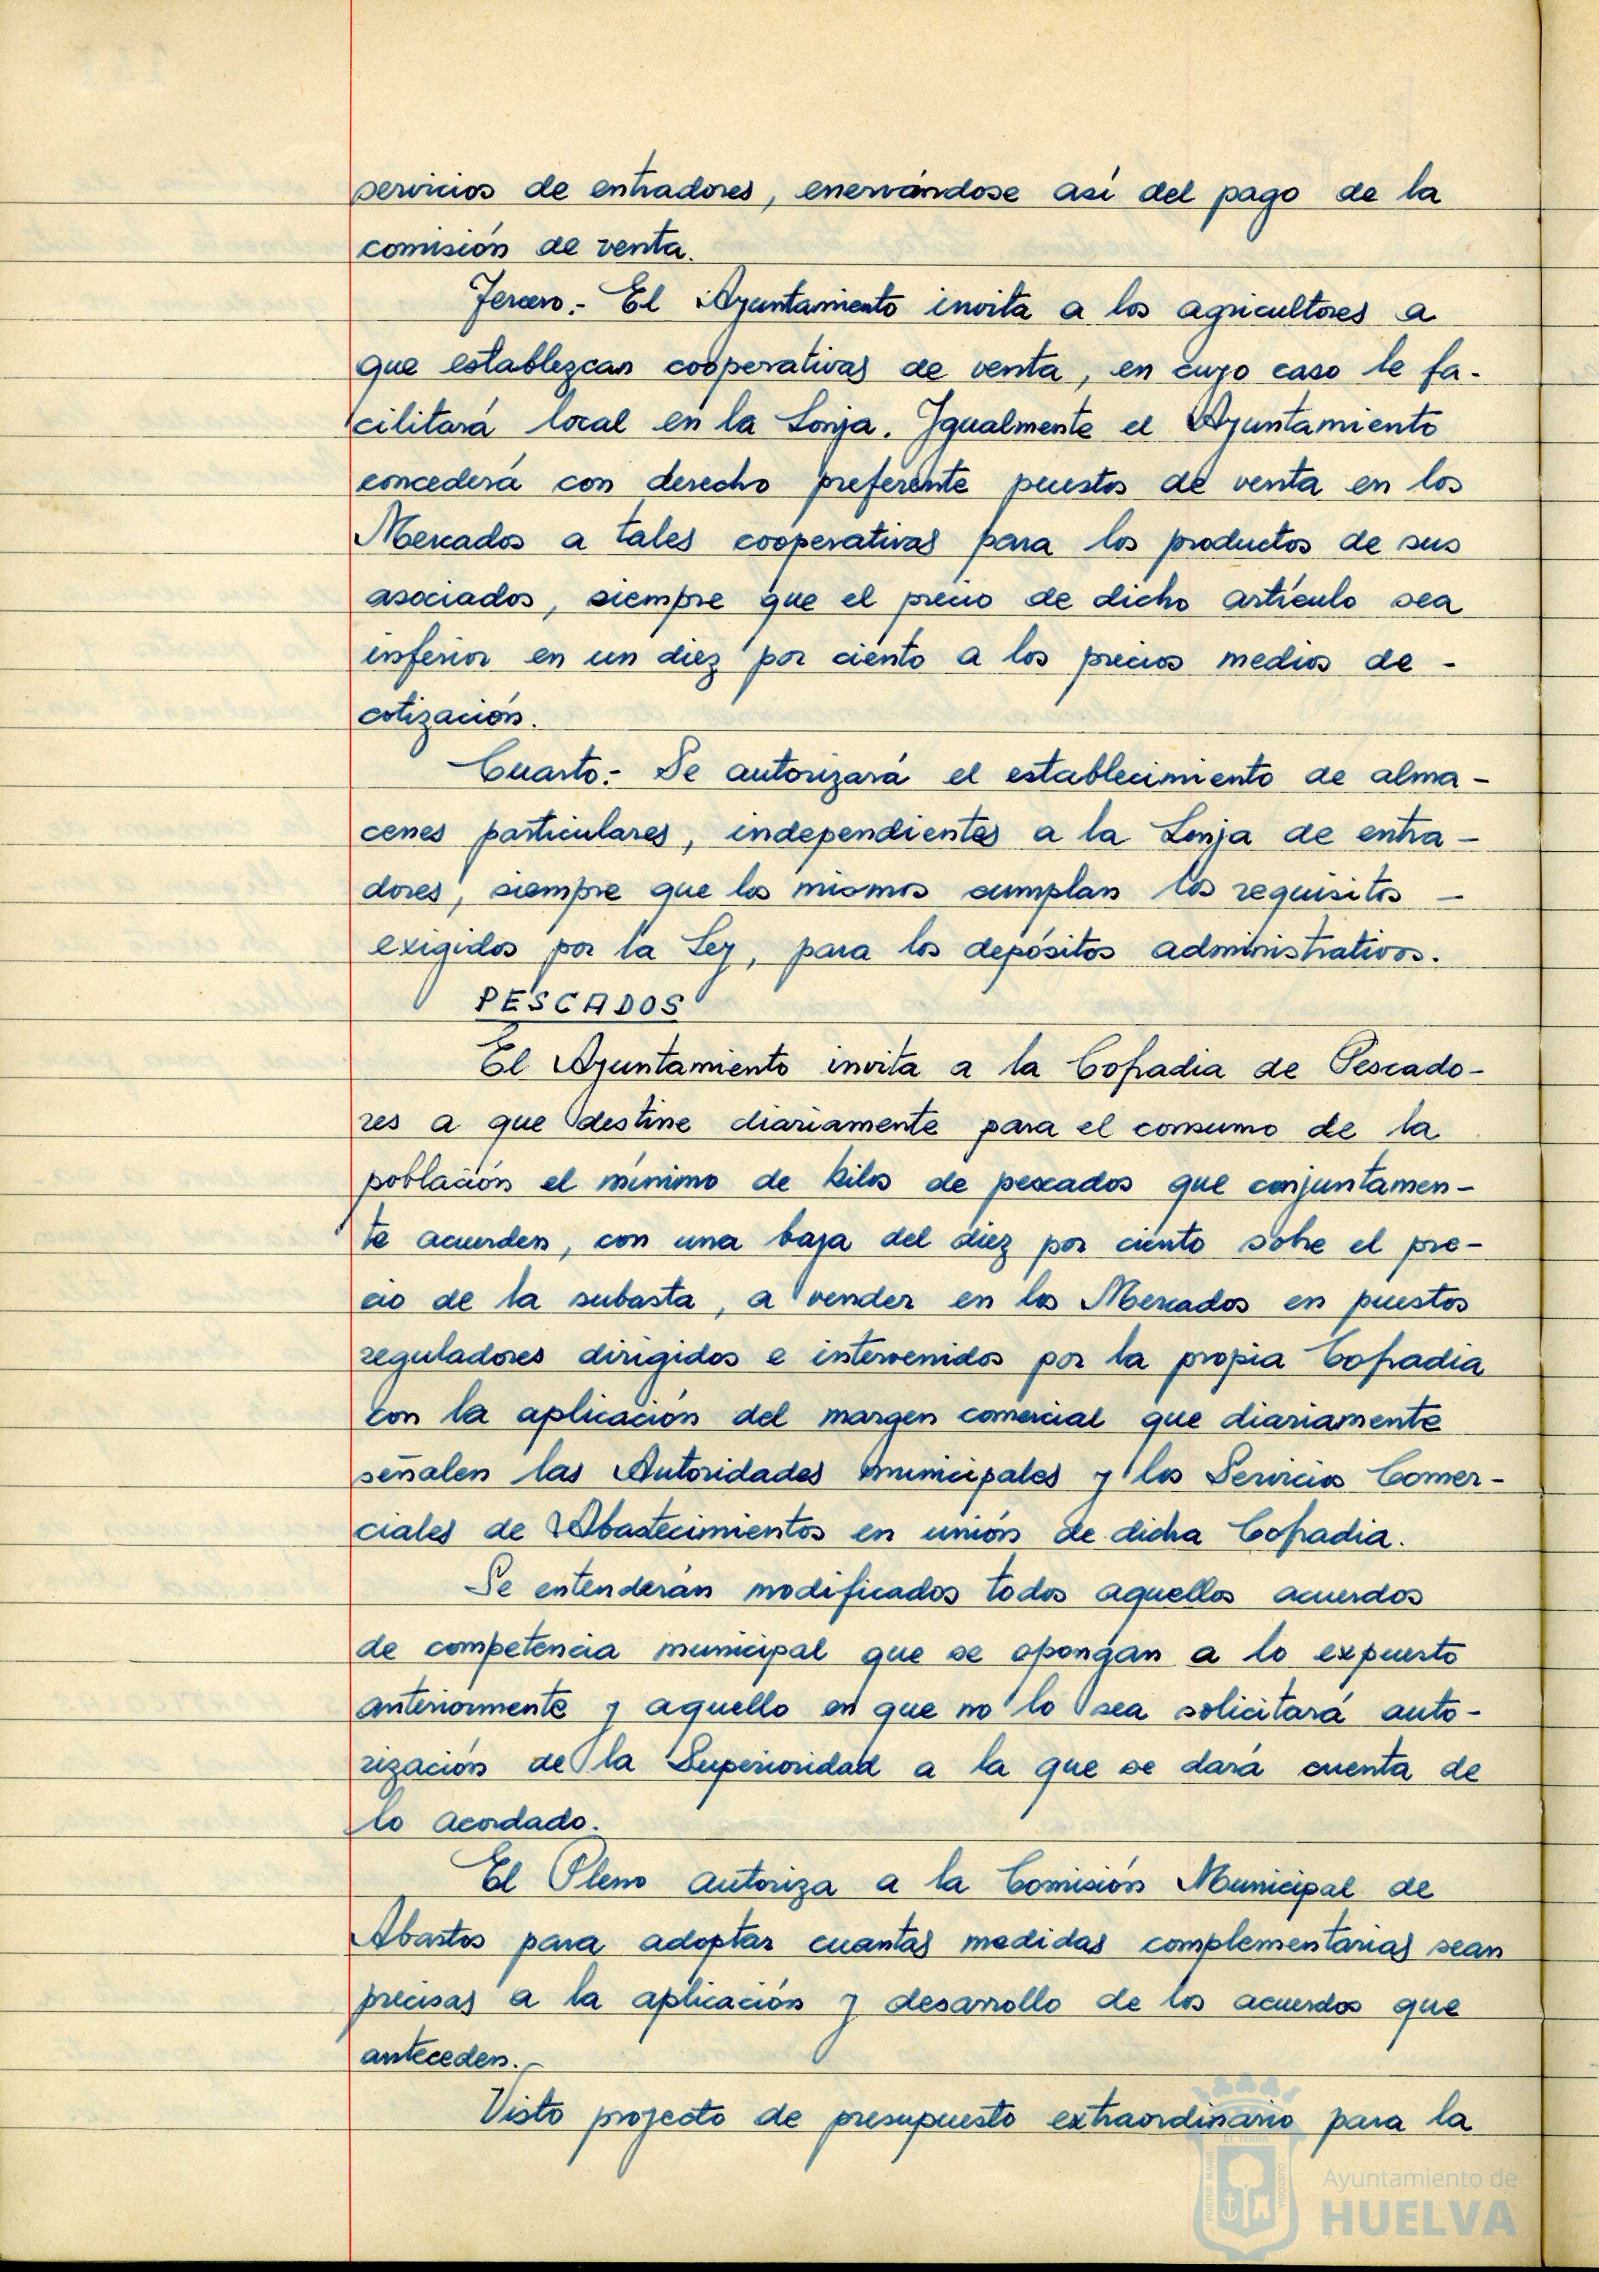 servicios de entradores, enervándose así del pago de la
comisión de venta.
Tercero.- El Ayuntamiento invita a los agricultores a
que establezcan cooperativas de venta, en cuyo caso le fa-
cilitará local en la Lonja. Igualmente el Ayuntamiento
concederá con derecho preferente puestos de venta en los
Mercados a tales cooperativas para los productos de sus
asociados, siempre que el precio de dicho artículo sea
inferior en un diez por ciento a los precios medios de -
cotización.
Cuarto.- Se autorizará el establecimiento de alma-
cenes particulares, independientes a la Lonja de entra-
dores, siempre que los mismos cumplan los requisitos -
exigidos por la Ley, para los depósitos administrativos.
PESCADOS
El Ayuntamiento invita a la Cofradia de Pescado-
res a que destine diariamente para el consumo de la
población el mínimo de kilos de pescados que conjuntamen-
te acuerden, con una baja del diez por ciento sobre el pre-
cio de la subasta, a vender en los Mercados en puestos
reguladores dirigidos e intervenidos por la propia Cofradia
con la aplicación del margen comercial que diariamente
señalen las Autoridades municipales y los Servicios Comer-
ciales de Abastecimientos en unión de dicha Cofradia.
Se entenderán modificados todos aquellos acuerdos
de competencia municipal que se opongan a lo expuesto
anteriormente y aquello en que no lo sea solicitará auto-
rización de la Superioridad a la que se dará cuenta de
lo acordado.
El Pleno autoriza a la Comisión Municipal de
Abastos para adoptar cuantas medidas complementarias sean
precisas a la aplicación y desarrollo de los acuerdos que
anteceden.-
Visto proyecto de presupuesto extraordinario para la
PORTUS MARIS
ET TERRAE
CUSTODIA
Ayuntamiento de
HUELVA